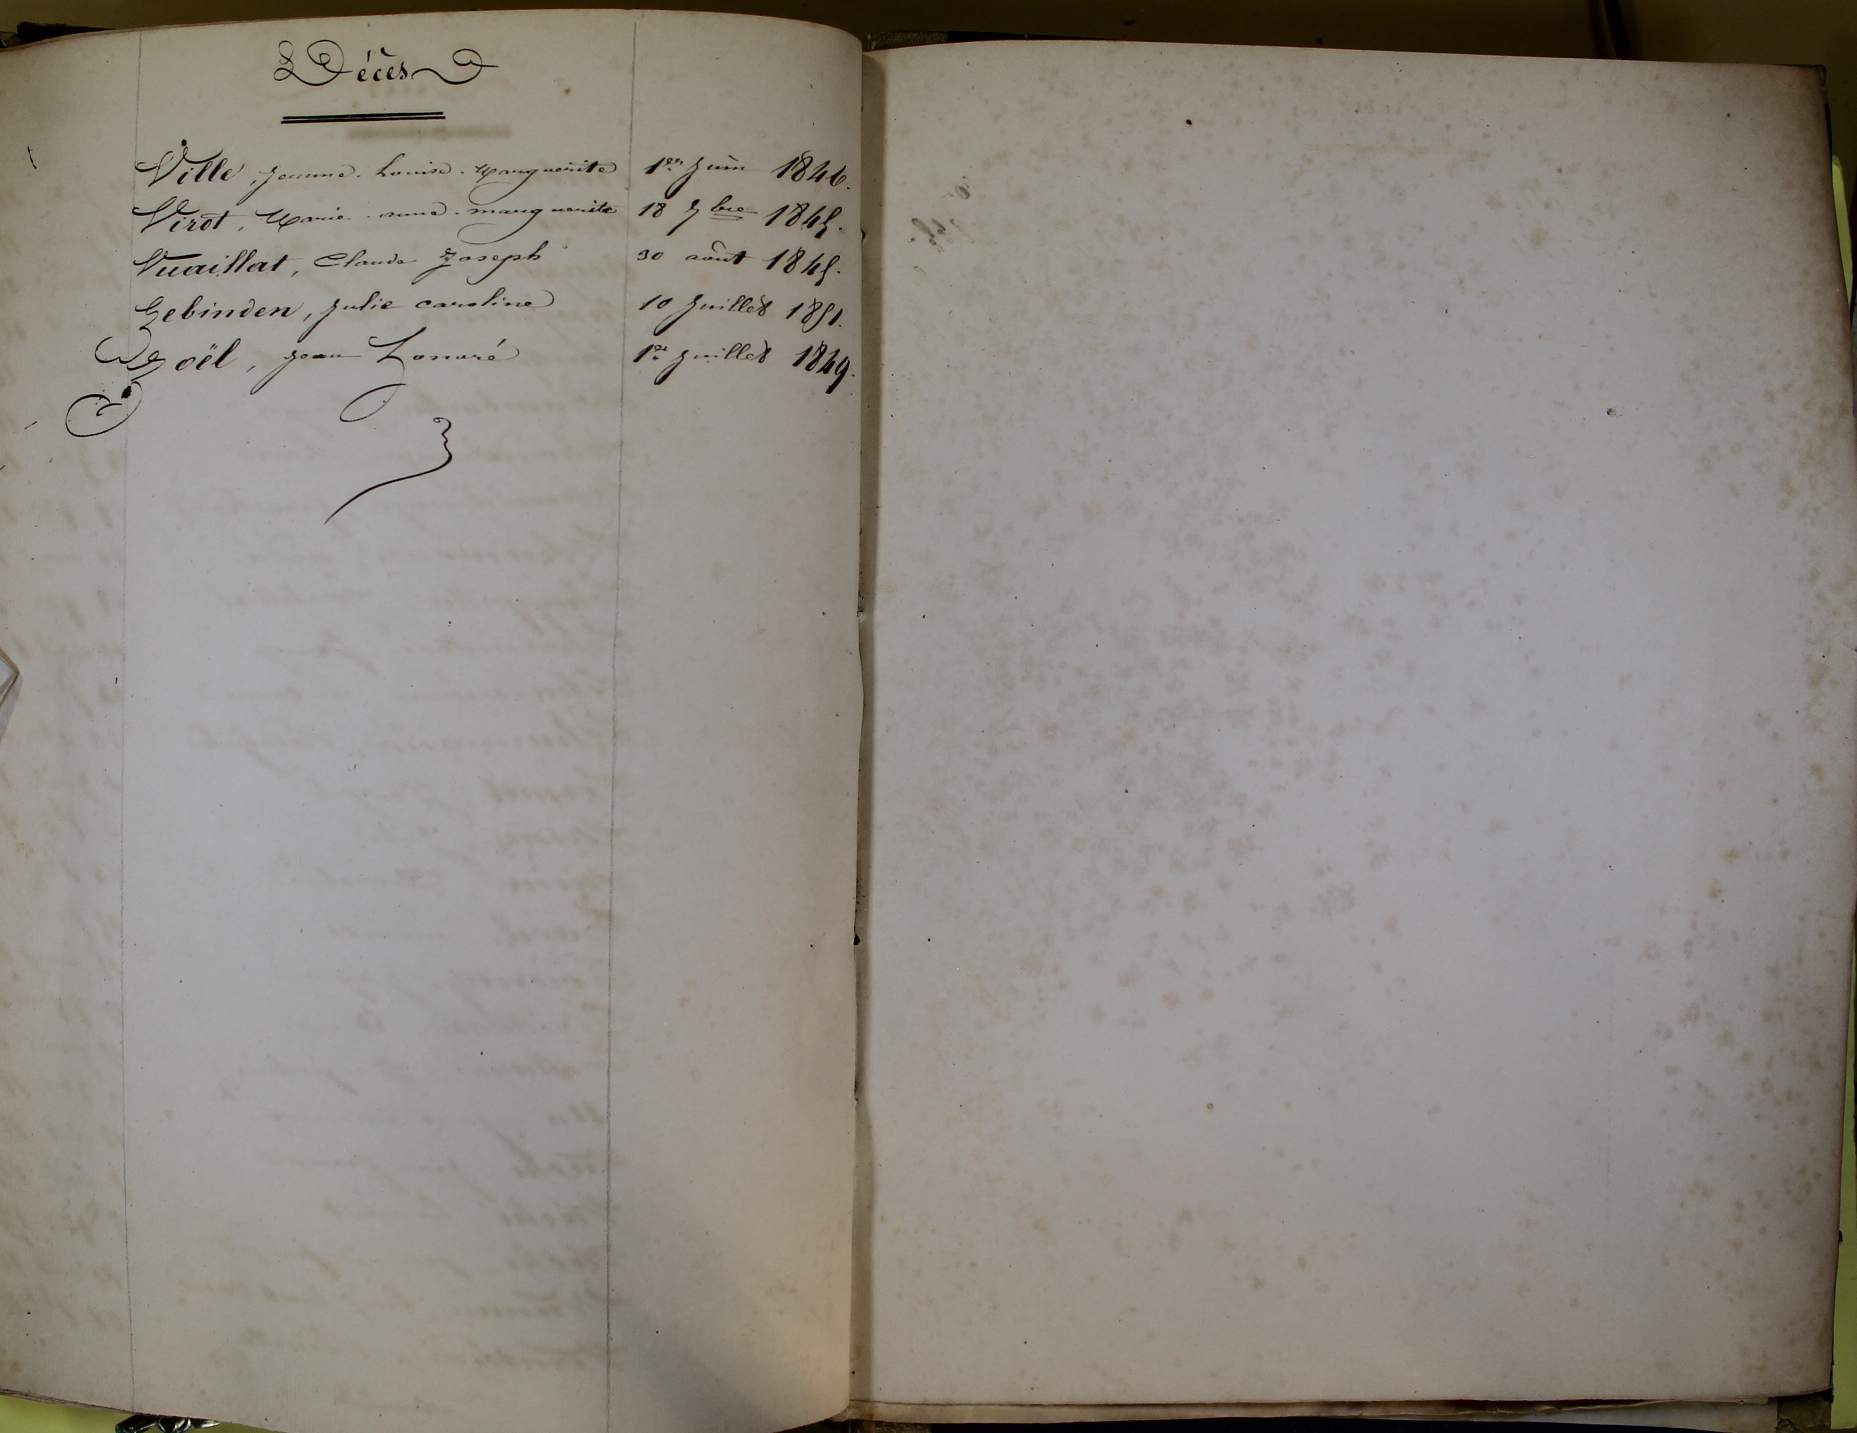 Décès
Ville, Jeanne Louise Marguerite 1er Juin 1846.
Virot, Marie anne marguerite 18 7bre 1845.
Vuaillat, Claude Joseph 30 août 1845.
Zebinden, Julie caroline 10 Juillet 1851.
Zoël, Jean Honoré 1er Juillet 1849.